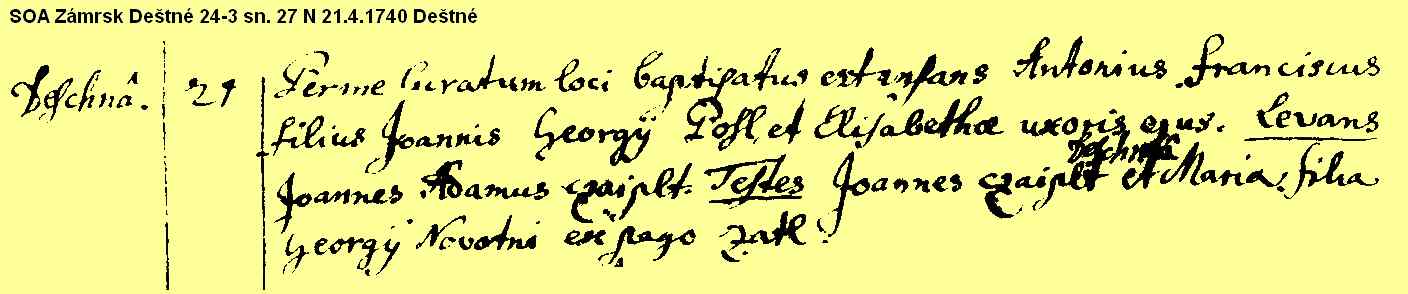 SOA Zámrsk Deštné 24-3 sn. 27 N 21.4.1740 Deštné
Deschnâ. 21 Per me Curatum loci baptisatus est infans Antonius Franciscus
filius Joannis Georgÿ Poſl et Elisabethæ uxoris ejus. Levans
Deschnâ
Joannes Adamus czaiplt. Testes Joannes czaiplt et Maria filia
Georgÿ Novotni ex pago Zatl.